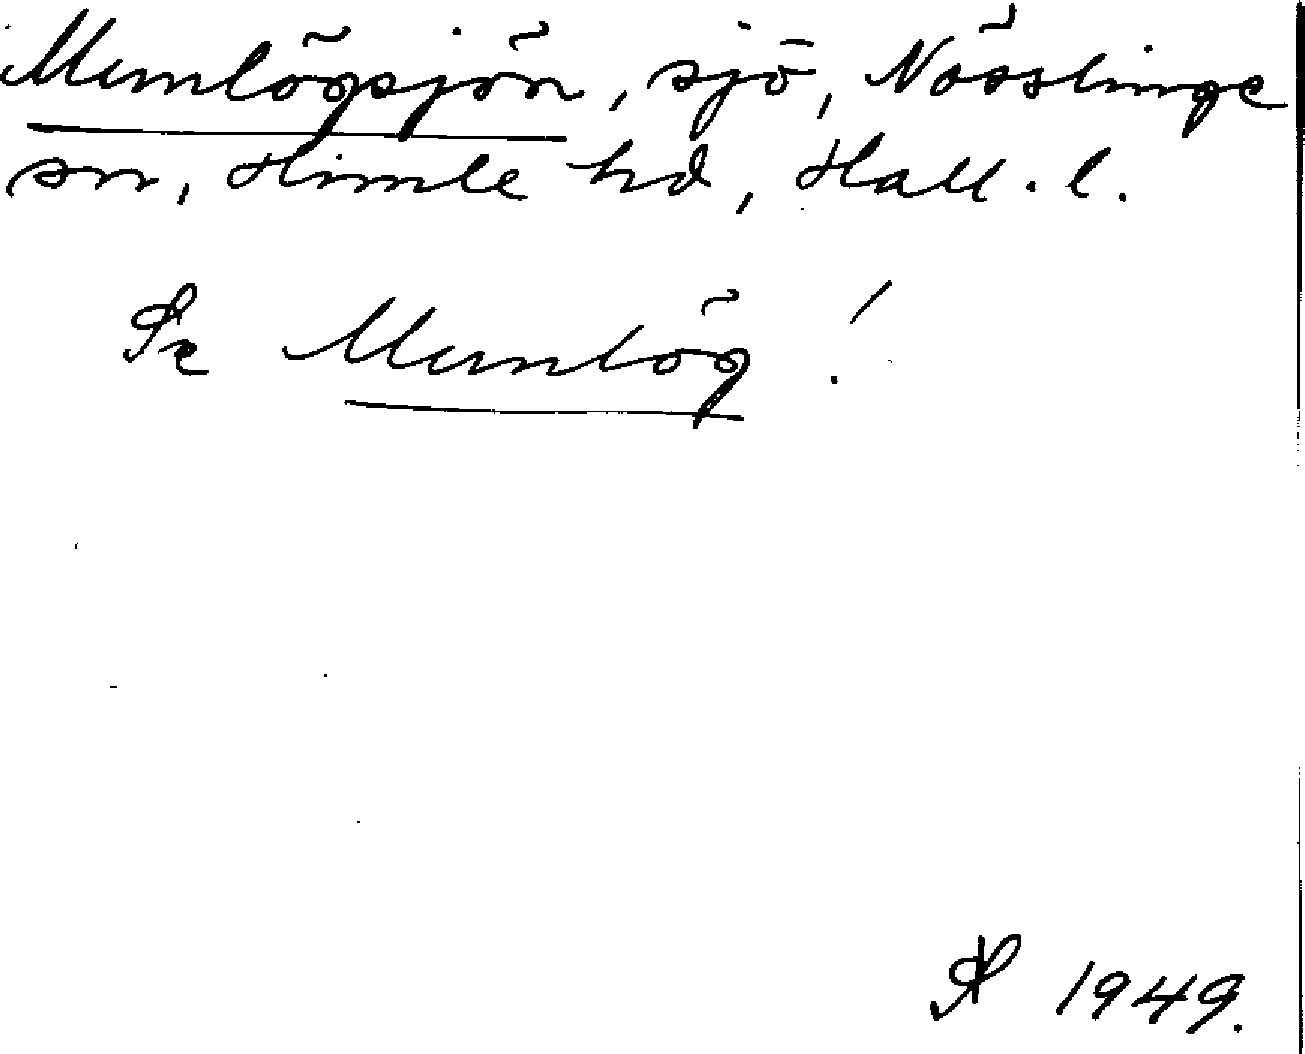 Mumlögsjön, sjö, Nösslinge
sn, Himle hd, Hall. l.
Se Mumlög !
1949.